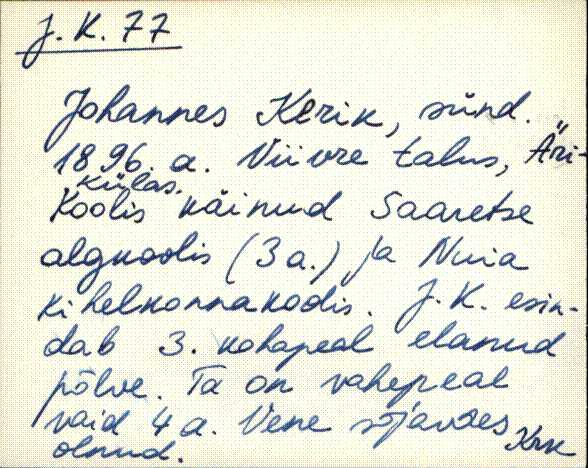 J. K. 77
Johannes Kerik, sünd.
1896. a. Viivre talus, Äri-
külas.
Koolis käinud Saaretse
algkoolis (3 a.) ja Nuia
kihelkonnakoolis. J. K. esin-
dab 3. kohapeal elanud
põlve. Ta on vahepeal
vaid 4 a. Vene sõjaväes
olnud. Krk